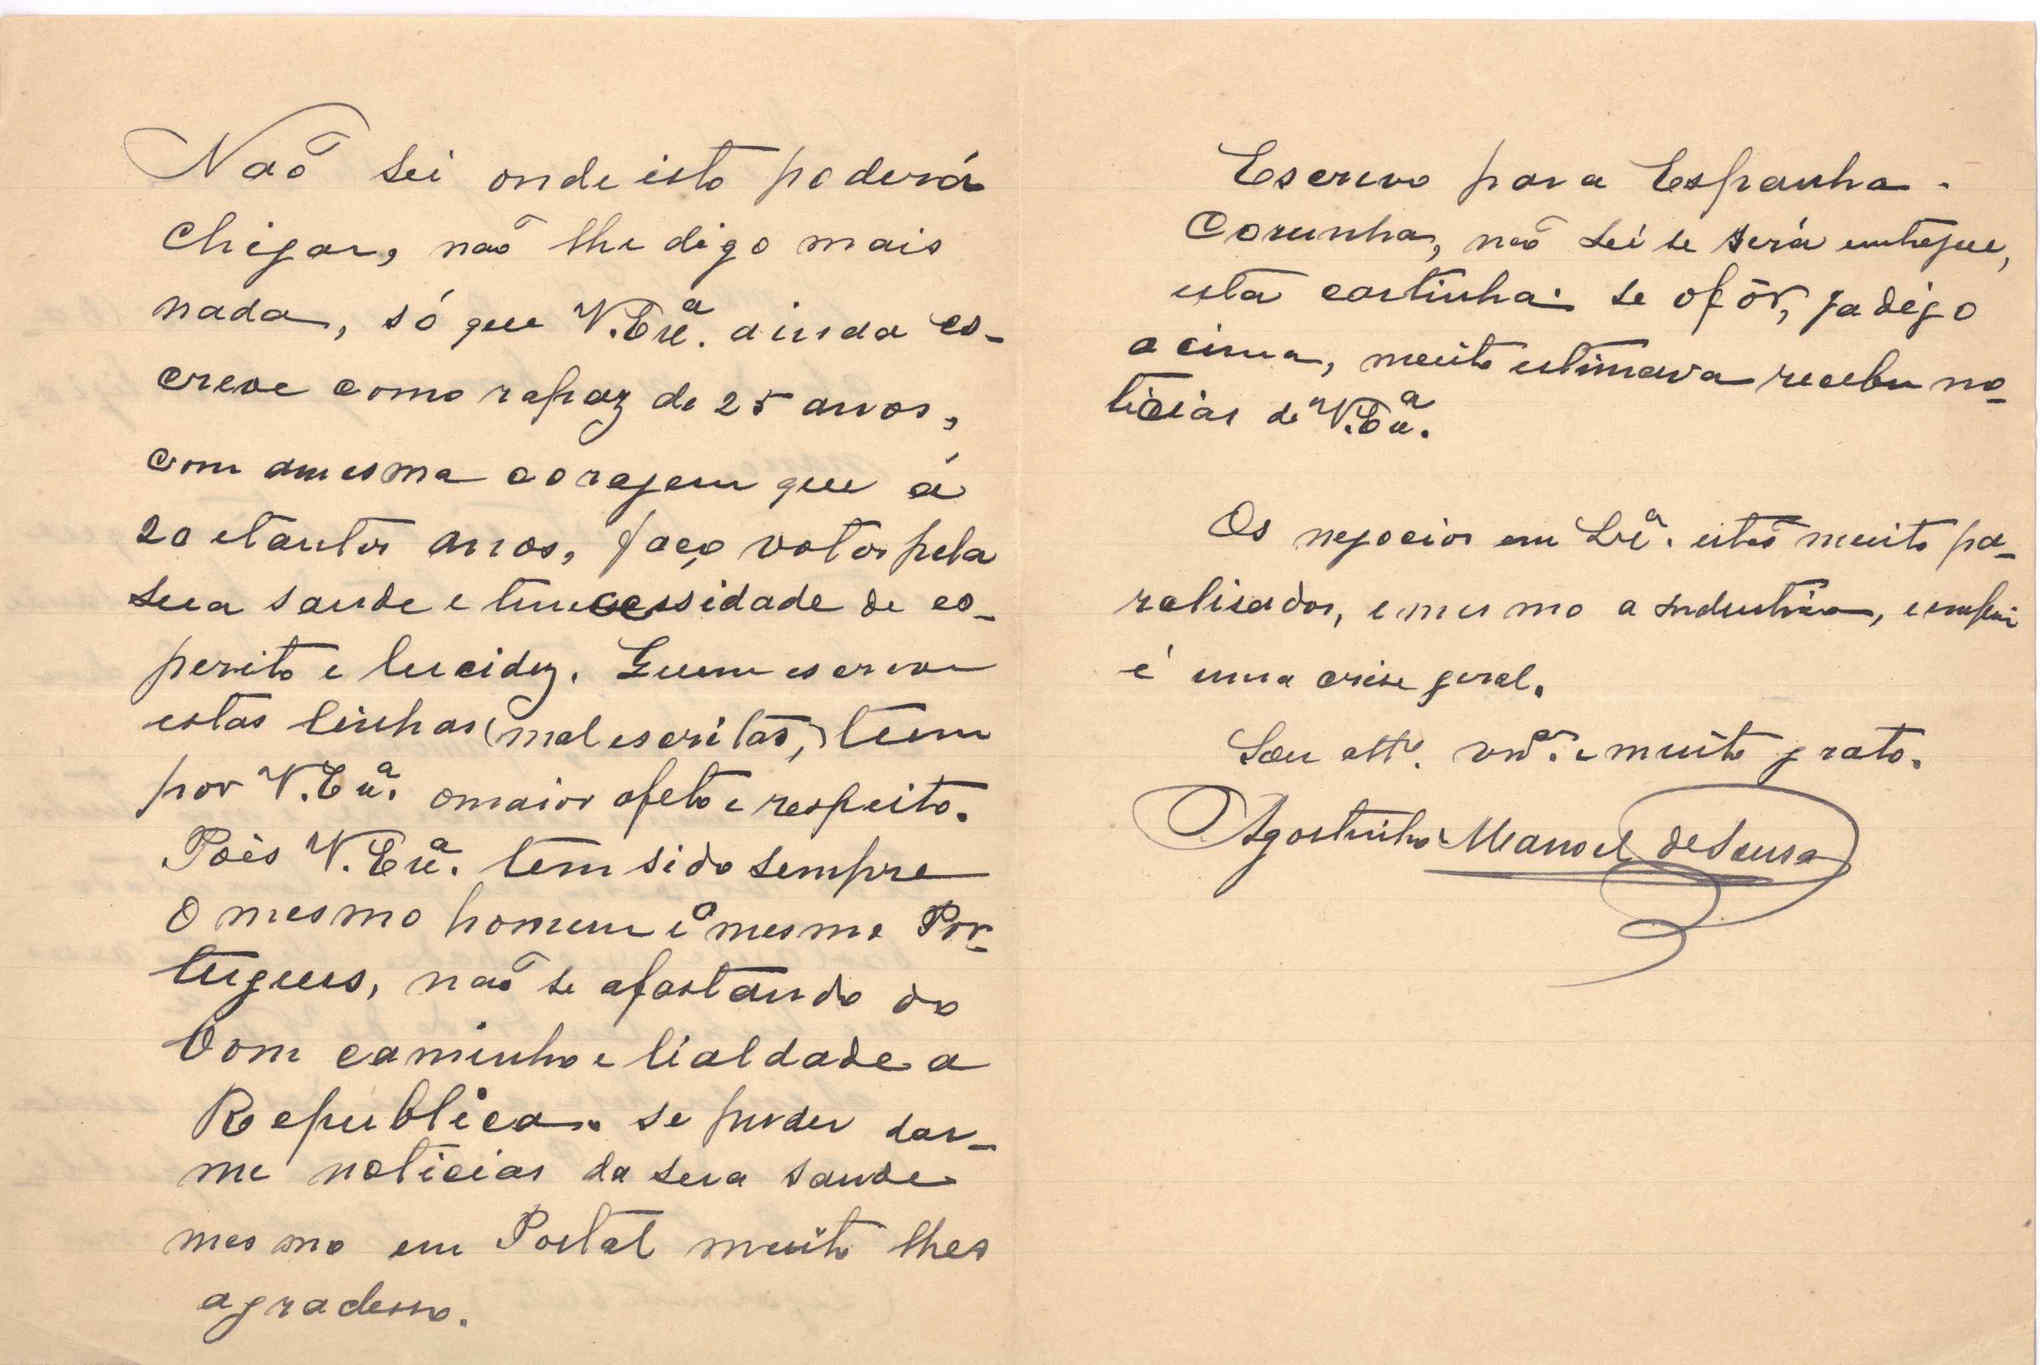 Não sei onde isto poderá
chigar, não lhe digo mais
nada, só que V. Exª. ainda es-
creve como rapaz de 25 anos,
com amesma coragem que á
20 etantos anos, faço votos pela
sua saude e tenacessidade de es-
perito e lucidez. Quem escreve
estas linhas (mal escritas,) tem
por V. Exª. omaior afeto e respeito.
Pois V. Exª. tem sido sempre
o mesmo homem e o mesmo Por-
tugues, não se afastando do
bom caminho e lialdade a
Republica. se puder dar-
me noticias da sua saude
mesmo em Postal muito lhes
agradesso.
Escrevo para Espanha.
Corunha, não sei se será entregue,
esta cartinha: se ofôr, ja digo
acima, muito estimava receber no-
ticias de V. Exª.
Os negocios em Lxª. estão muito pa-
ralisados, e mesmo a industria, emfim
é uma crise geral.
Sou attº. vnºr. e muito grato.
Agostinho Manoel de Sousa